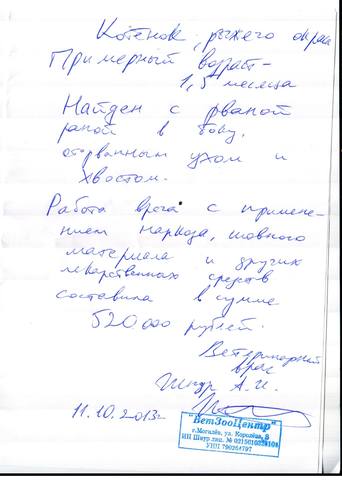 Котёнок, рыжего окраса
Примерный возраст -
1,5 месяца
Найден с рваной
раной в боку,
оторванным ухом и
хвостом.
Работа врача с примене-
нием наркоза, шовного
материала и других
лекарственных средств
составила в сумме
520 000 рублей.
Ветеринарный
врач
Шнур А.И.
11.10.2013г
"ВетЗооЦентр"
г.Могилёв, ул. Королёва, 8
ИП Шнур лиц. №
УНП 790264797